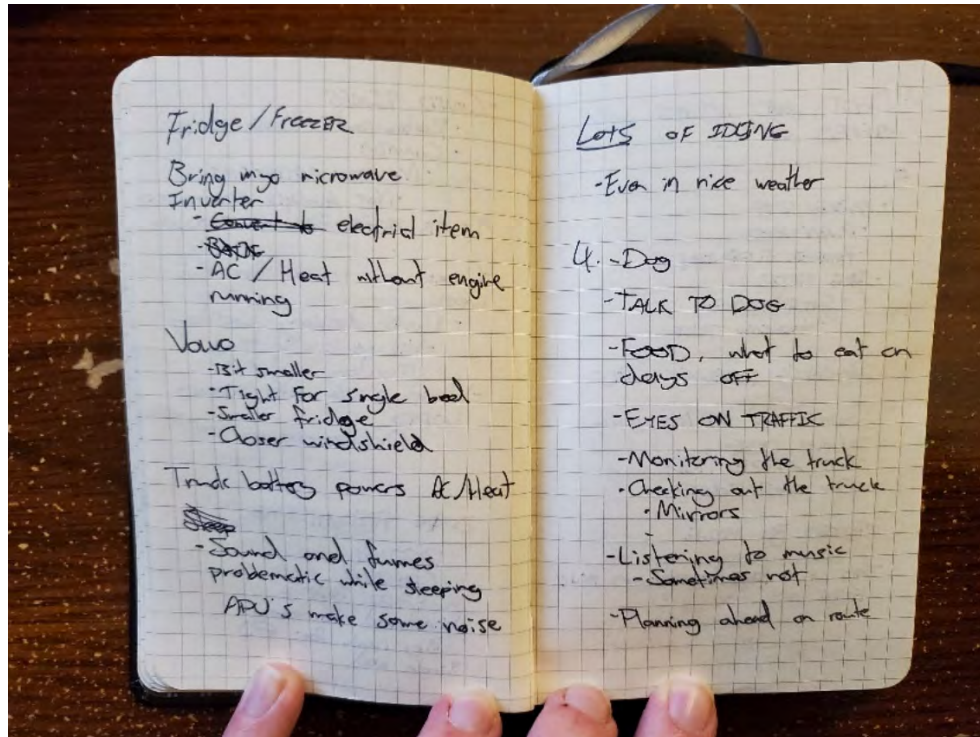 Fridge / FREEZER
Bring myo microwave
Inverter
- Convert to electrical item
- AC / Heat without engine
running
Volvo
- Bit smaller
- Tight for single bed
- Smaller fridge
- Closer windshield
Truck battery powers AC/Heat
Sleep
- Sound and fumes
problematic while sleeping
APU's make some noise
LOTS OF IDLING
- Even in nice weather
4. - Dog
- TALK TO DOG
- FOOD, what to eat on
days OFF
- EYES ON TRAFFIC
- Monitoring the truck
- Checking out the truck
- Mirrors
- Listening to music
- Sometimes not
- Planning ahead on route